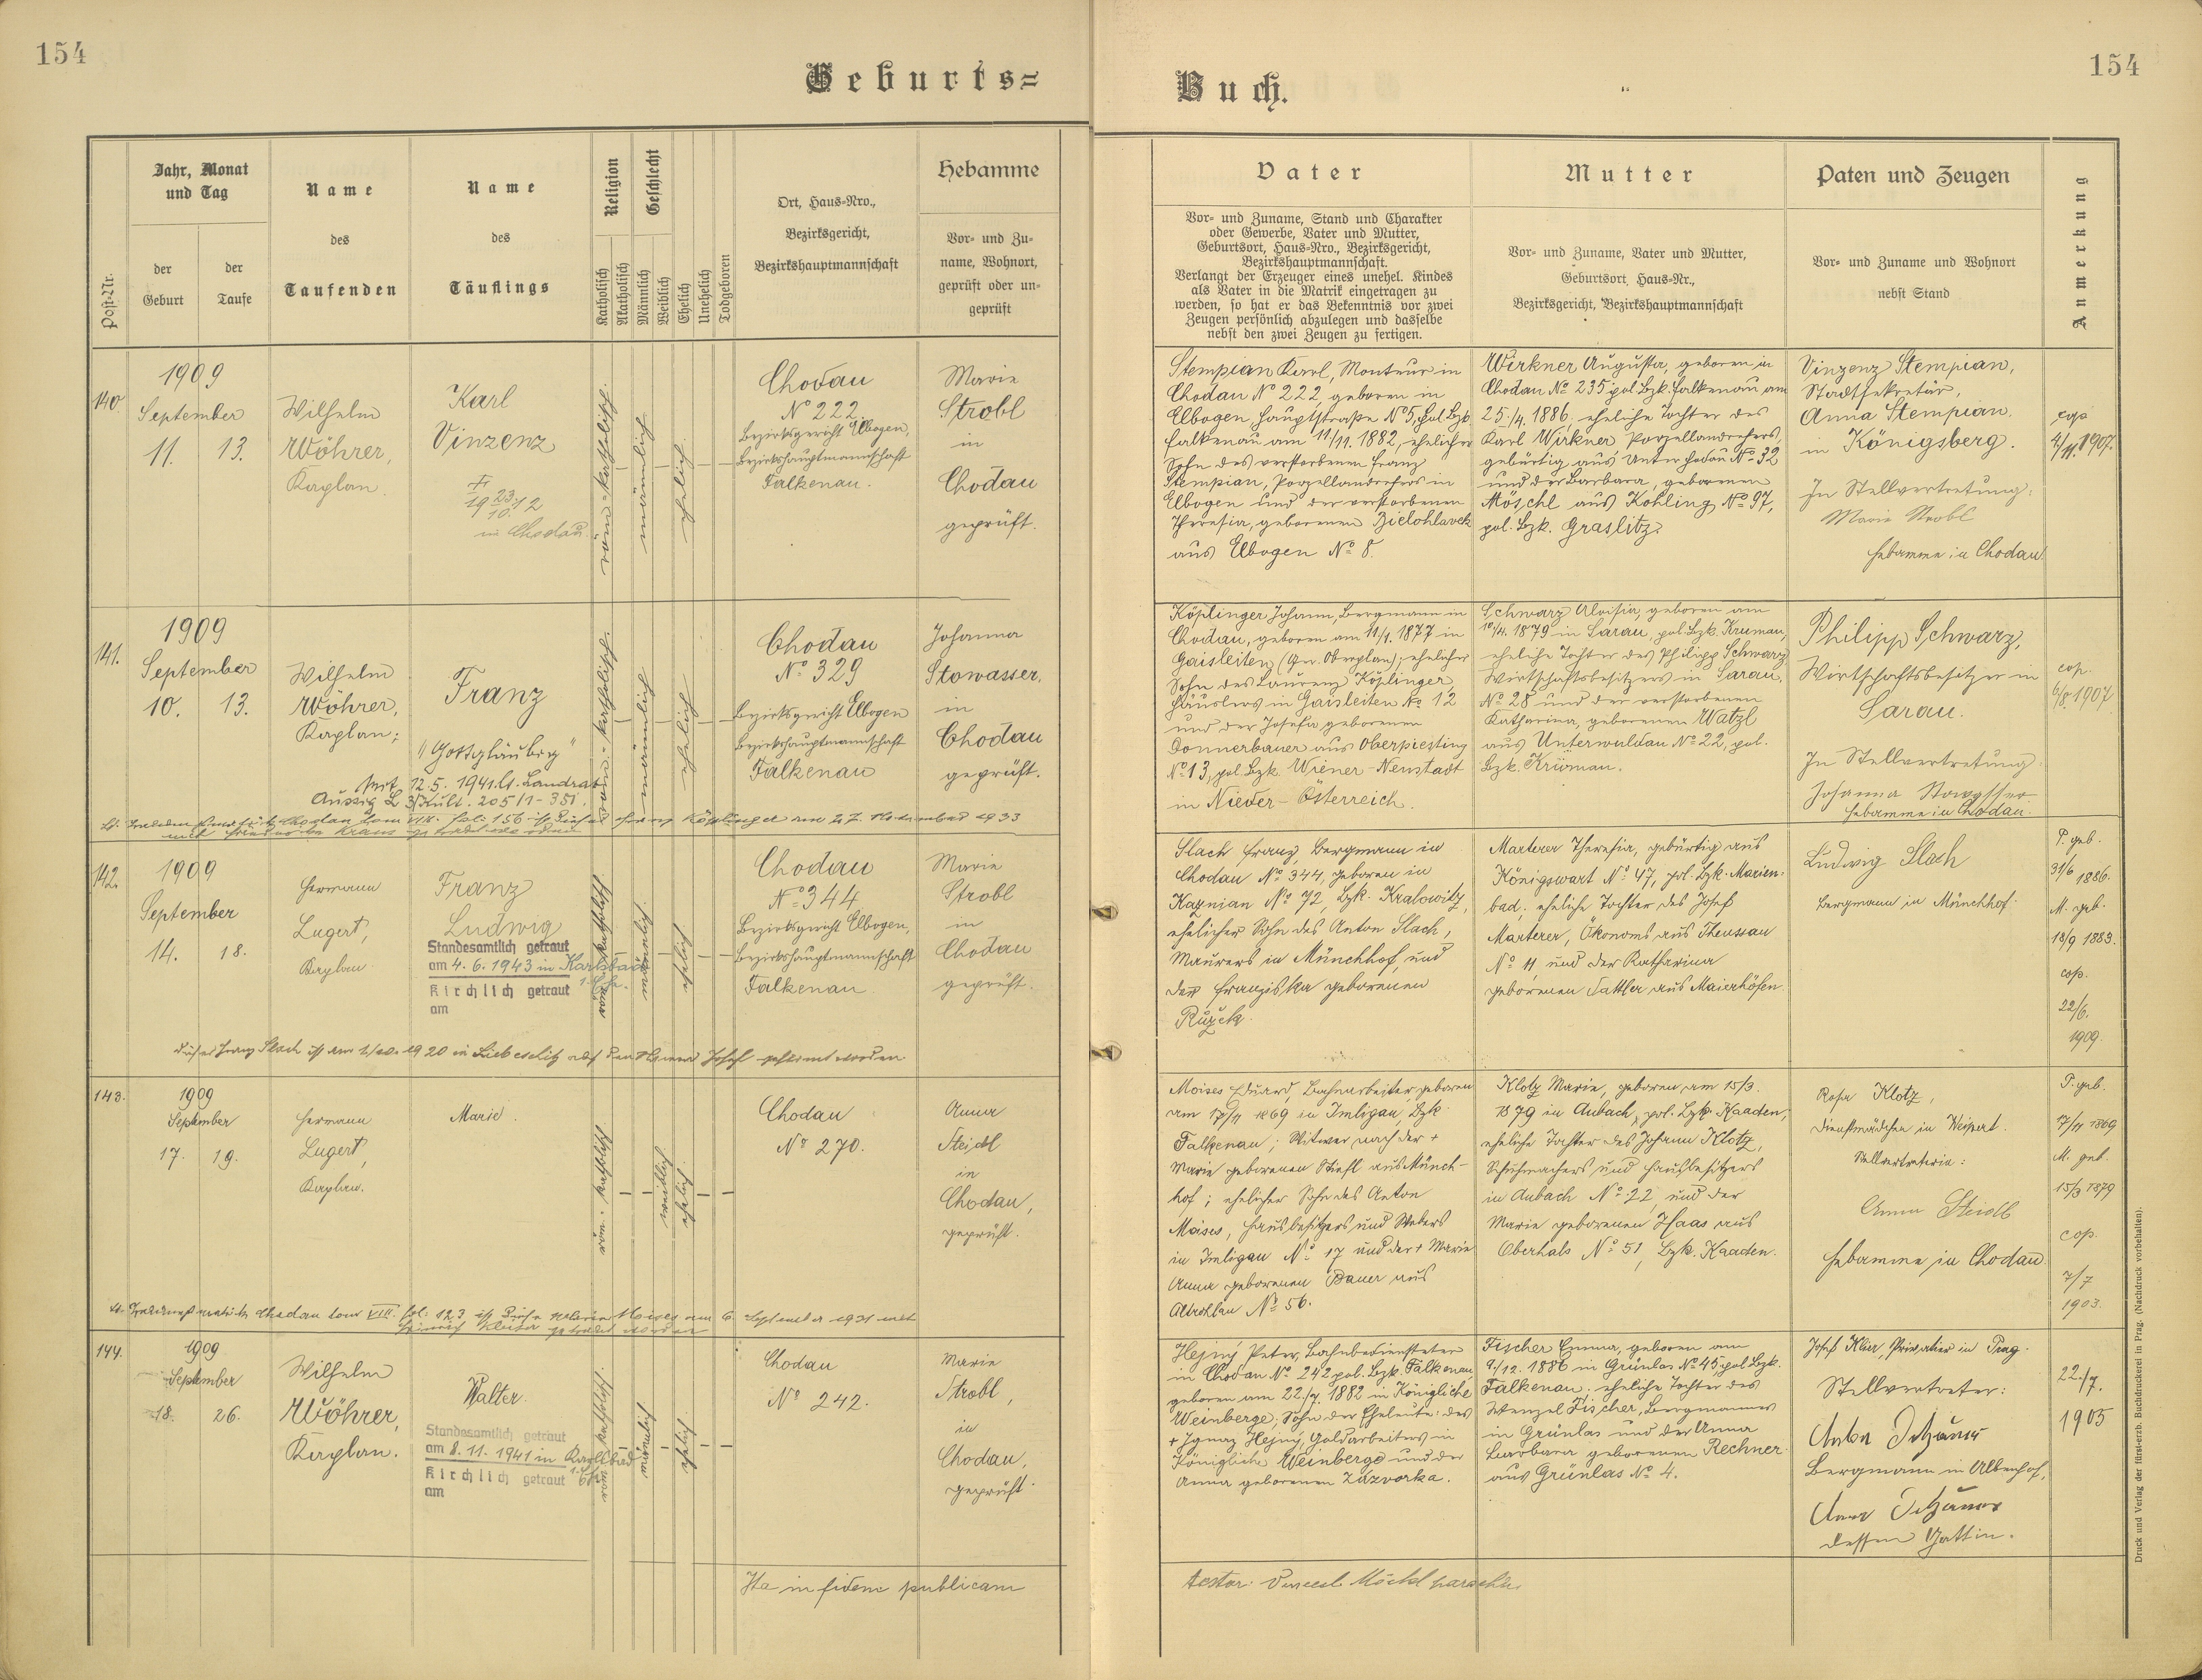 154
154
Geburts=
Buch.
Post-Nr.
Jahr, Monat
und Tag
der
Geburt
der
Taufe
Name
des
Taufenden
Name
des
Täuflings
Religion
Katholisch
Akatholisch
Geschlecht
Männlich
Weiblich
Ehelich
Unehelich
Todgeboren
Ort, Haus=Nro.,
Bezirksgericht,
Bezirkshauptmannschaft
Hebamme
Vor= und Zu=
name, Wohnort,
geprüft oder un=
geprüft
Vater
Vor= und Zuname, Stand und Charakter
oder Gewerbe, Vater und Mutter,
Geburtsort, Haus=Nro., Bezirksgericht,
Bezirkshauptmannschaft.
Verlangt der Erzeuger eines unehel. Kindes
als Vater in die Matrik eingetragen zu
werden, so hat er das Bekenntnis vor zwei
Zeugen persönlich abzulegen und dasselbe
nebst den zwei Zeugen zu fertigen.
Mutter
Vor= und Zuname, Vater und Mutter,
Geburtsort, Haus=Nr.,
Bezirksgericht, Bezirkshauptmannschaft
Paten und Zeugen
Vor= und Zuname und Wohnort
nebst Stand
Anmerkung
140.
1909
September
11. 13.
Wilhelm
Wöhrer,
Kaplan.
Karl
Vinzenz
in Chodau.
röm.-katholisch.
männlich
ehelich
Chodau
No 222.
Bezirksgericht Elbogen,
Bezirkshauptmannschaft
Falkenau.
Marie
Strobl
in
Chodau
geprüft.
Stempian Karl, Monteur in
Chodau No 222, geboren in
Elbogen Hauptstraße No 5, pol. Bzk.
Falkenau am 11/11. 1882, ehelicher
Sohn des verstorbenen Franz
Stempian, Porzellandrehers in
Elbogen und der verstorbenen
Theresia, geborenen Bielohlavek
aus Elbogen No 8.
Wirkner Augusta, geboren in
Chodau No 235 pol. Bzk. Falkenau am
25./4. 1886. eheliche Tochter des
Karl Wirkner Porzellandrehers,
gebürtig aus Unterchodau No 32
und der Barbara, geborenen
Möschl aus Kohling No 97,
pol. Bzk. Graslitz.
Vinzenz Stempian,
Stadtsekretär,
Anna Stempian.
in Königsberg.
In Stellvertretung:
Marie Strobl
Hebamme in Chodau.
cop.
4/11. 1907.
141.
1909
September
10. 13.
Wilhelm
Wöhrer,
Kaplan;
Franz
"Gottgläubig"
seit 12.5. 1941. lt. Landrat
röm.-katholisch.
männlich
ehelich
Chodau
No 329
Bezirksgericht Elbogen
Bezirkshauptmannschaft
Falkenau
Johanna
Stowasser.
in
Chodau
geprüft.
Köplinger Johann, Bergmann in
Chodau, geboren am 11/1. 1877 in
Gaisleiten (Gm. Oberplan), ehelicher
Sohn des Laurenz Köplinger
Häuslers in Gaisleiten No 12
und der Josefa geborenen
Donnerbauer aus Oberpiesting
No 13, pol. Bzk. Wiener-Neustadt
in Nieder-Österreich.
Schwarz Aloisia, geboren am
10/4. 1879 in Sarau, pol. Bzk. Krumau,
eheliche Tochter des Philipp Schwarz
Wirtschaftsbesitzers in Sarau,
No 28 und der verstorbenen
Katharina, geborenen Watzl
aus Unterwuldau No 22, pol.
Bzk. Krumau.
Philipp Schwarz,
Wirtschaftsbesitzer in
Sarau.
In Stellvertretung:
Johanna Stowasser
Hebamme in Chodau.
cop.
6/8. 1907.
142.
1909
September
14. 18.
Hermann
Lugert,
Kaplan
Franz
Ludwig
Standesamtlich getraut
am 4. 6. 1943 in Karlsbad
Kirchlich getraut
am
röm. katholisch.
männlich.
ehelich
Chodau
No 344
Bezirksgericht Elbogen,
Bezirkshauptmannschaft
Falkenau
Marie
Strobl
in
Chodau
geprüft.
Slach Franz, Bergmann in
Chodau No 344, geboren in
Kaznian No 72, Bzk. Kralowitz,
ehelicher Sohn des Anton Slach,
Maurers in Münchhof und
der Franziska geborenen
Růžek.
Marterer Theresia, gebürtig aus
Königswart No 47, pol. Bzk. Marien-
bad; eheliche Tochter des Josef
Marterer, Ökonoms aus Theussau
No 11 und der Katharina
geborenen Sattler aus Maierhöfen.
Ludwig Slach
Bergmann in Münchhof.
P. geb.
31/6 1886.
M. geb.
18/9 1883.
cop.
22/6.
1909.
143.
1909
September
17. 19.
Hermann
Lugert,
Kaplan.
Marie.
röm. katholisch.
weiblich
ehelich.
Chodau
No 270.
Anna
Steidl
in
Chodau,
geprüft.
Moises Eduard, Bahnarbeiter, geboren
am 17/11 1869 in Imligau, Bzk.
Falkenau; Witwer nach der +
Marie geborenen Stiefl aus Münch-
hof; ehelicher Sohn des Anton
Moises, Hausbesitzers und Webers
in Imligau No 17 und der + Marie
Anna geborenen Bauer aus
Altrohlau No 56.
Klotz Marie, geboren am 15/3.
1879 in Aubach, pol. Bzk. Kaaden,
eheliche Tochter des Johann Klotz,
Schuhmachers und Hausbesitzers
in Aubach No 22 und der
Marie geborenen Haas aus
Oberhals No 51, Bzk. Kaaden.
Rosa Klotz,
Dienstmädchen in Weipert.
Stellvertreterin:
Anna Steidl
Hebamme in Chodau
P. geb.
17/11 1869
M. geb.
15/3 1879
cop.
7/7
1903.
144.
1909
September
18. 26.
Wilhelm
Wöhrer,
Kaplan.
Walter.
Standesamtlich getraut
am 8. 11. 1941 in Karlsbad
Kirchlich getraut
am
röm. katholisch.
männlich
ehelich.
Chodau
No 242.
Marie
Strobl,
in
Chodau,
geprüft.
Hejný Peter, Bahnbediensteter
in Chodau No 242 pol. Bzk. Falkenau,
geboren am 22./7. 1882 in Königliche
Weinberge, Sohn der Eheleute: des
+ Ignaz Hejný, Goldarbeiters in
Königliche Weinberge und der
Anna geborenen Zázvorka.
Fischer Emma, geboren am
9./12. 1886 in Grünlas No 45 pol. Bzk.
Falkenau. eheliche Tochter des
Wenzel Fischer, Bergmannes
in Grünlas und der Anna
Barbara geborenen Rechner
aus Grünlas No 4.
Josef Klier, Privatier in Prag.
Stellvertreter:
Bergmann in Albenhof,
dessen Gattin.
22./7.
1905
Ita in fidem publicam
testor:
Druck und Verlag der fürst-erzb. Buchdruckerei in Prag. (Nachdruck vorbehalten).